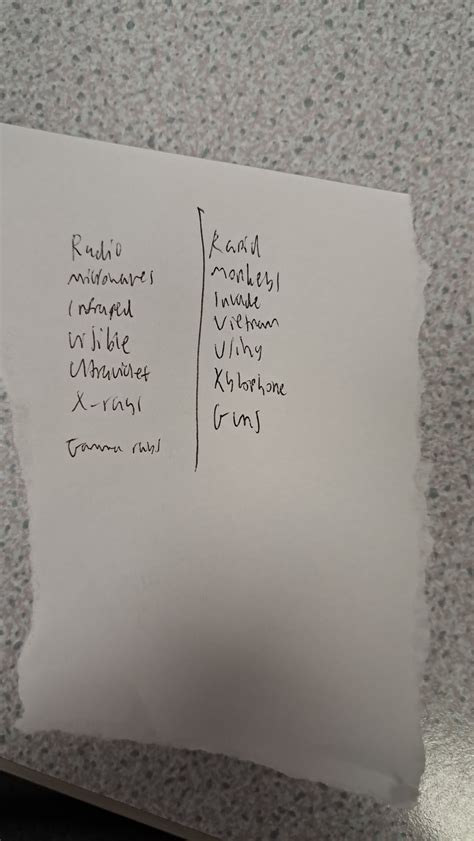 Radio
microwaves
Infrared
visible
Ultraviolet
X-rays
Gamma rays
Rapid
monkeys
Invade
Vietnam
Using
Xylophone
Guns